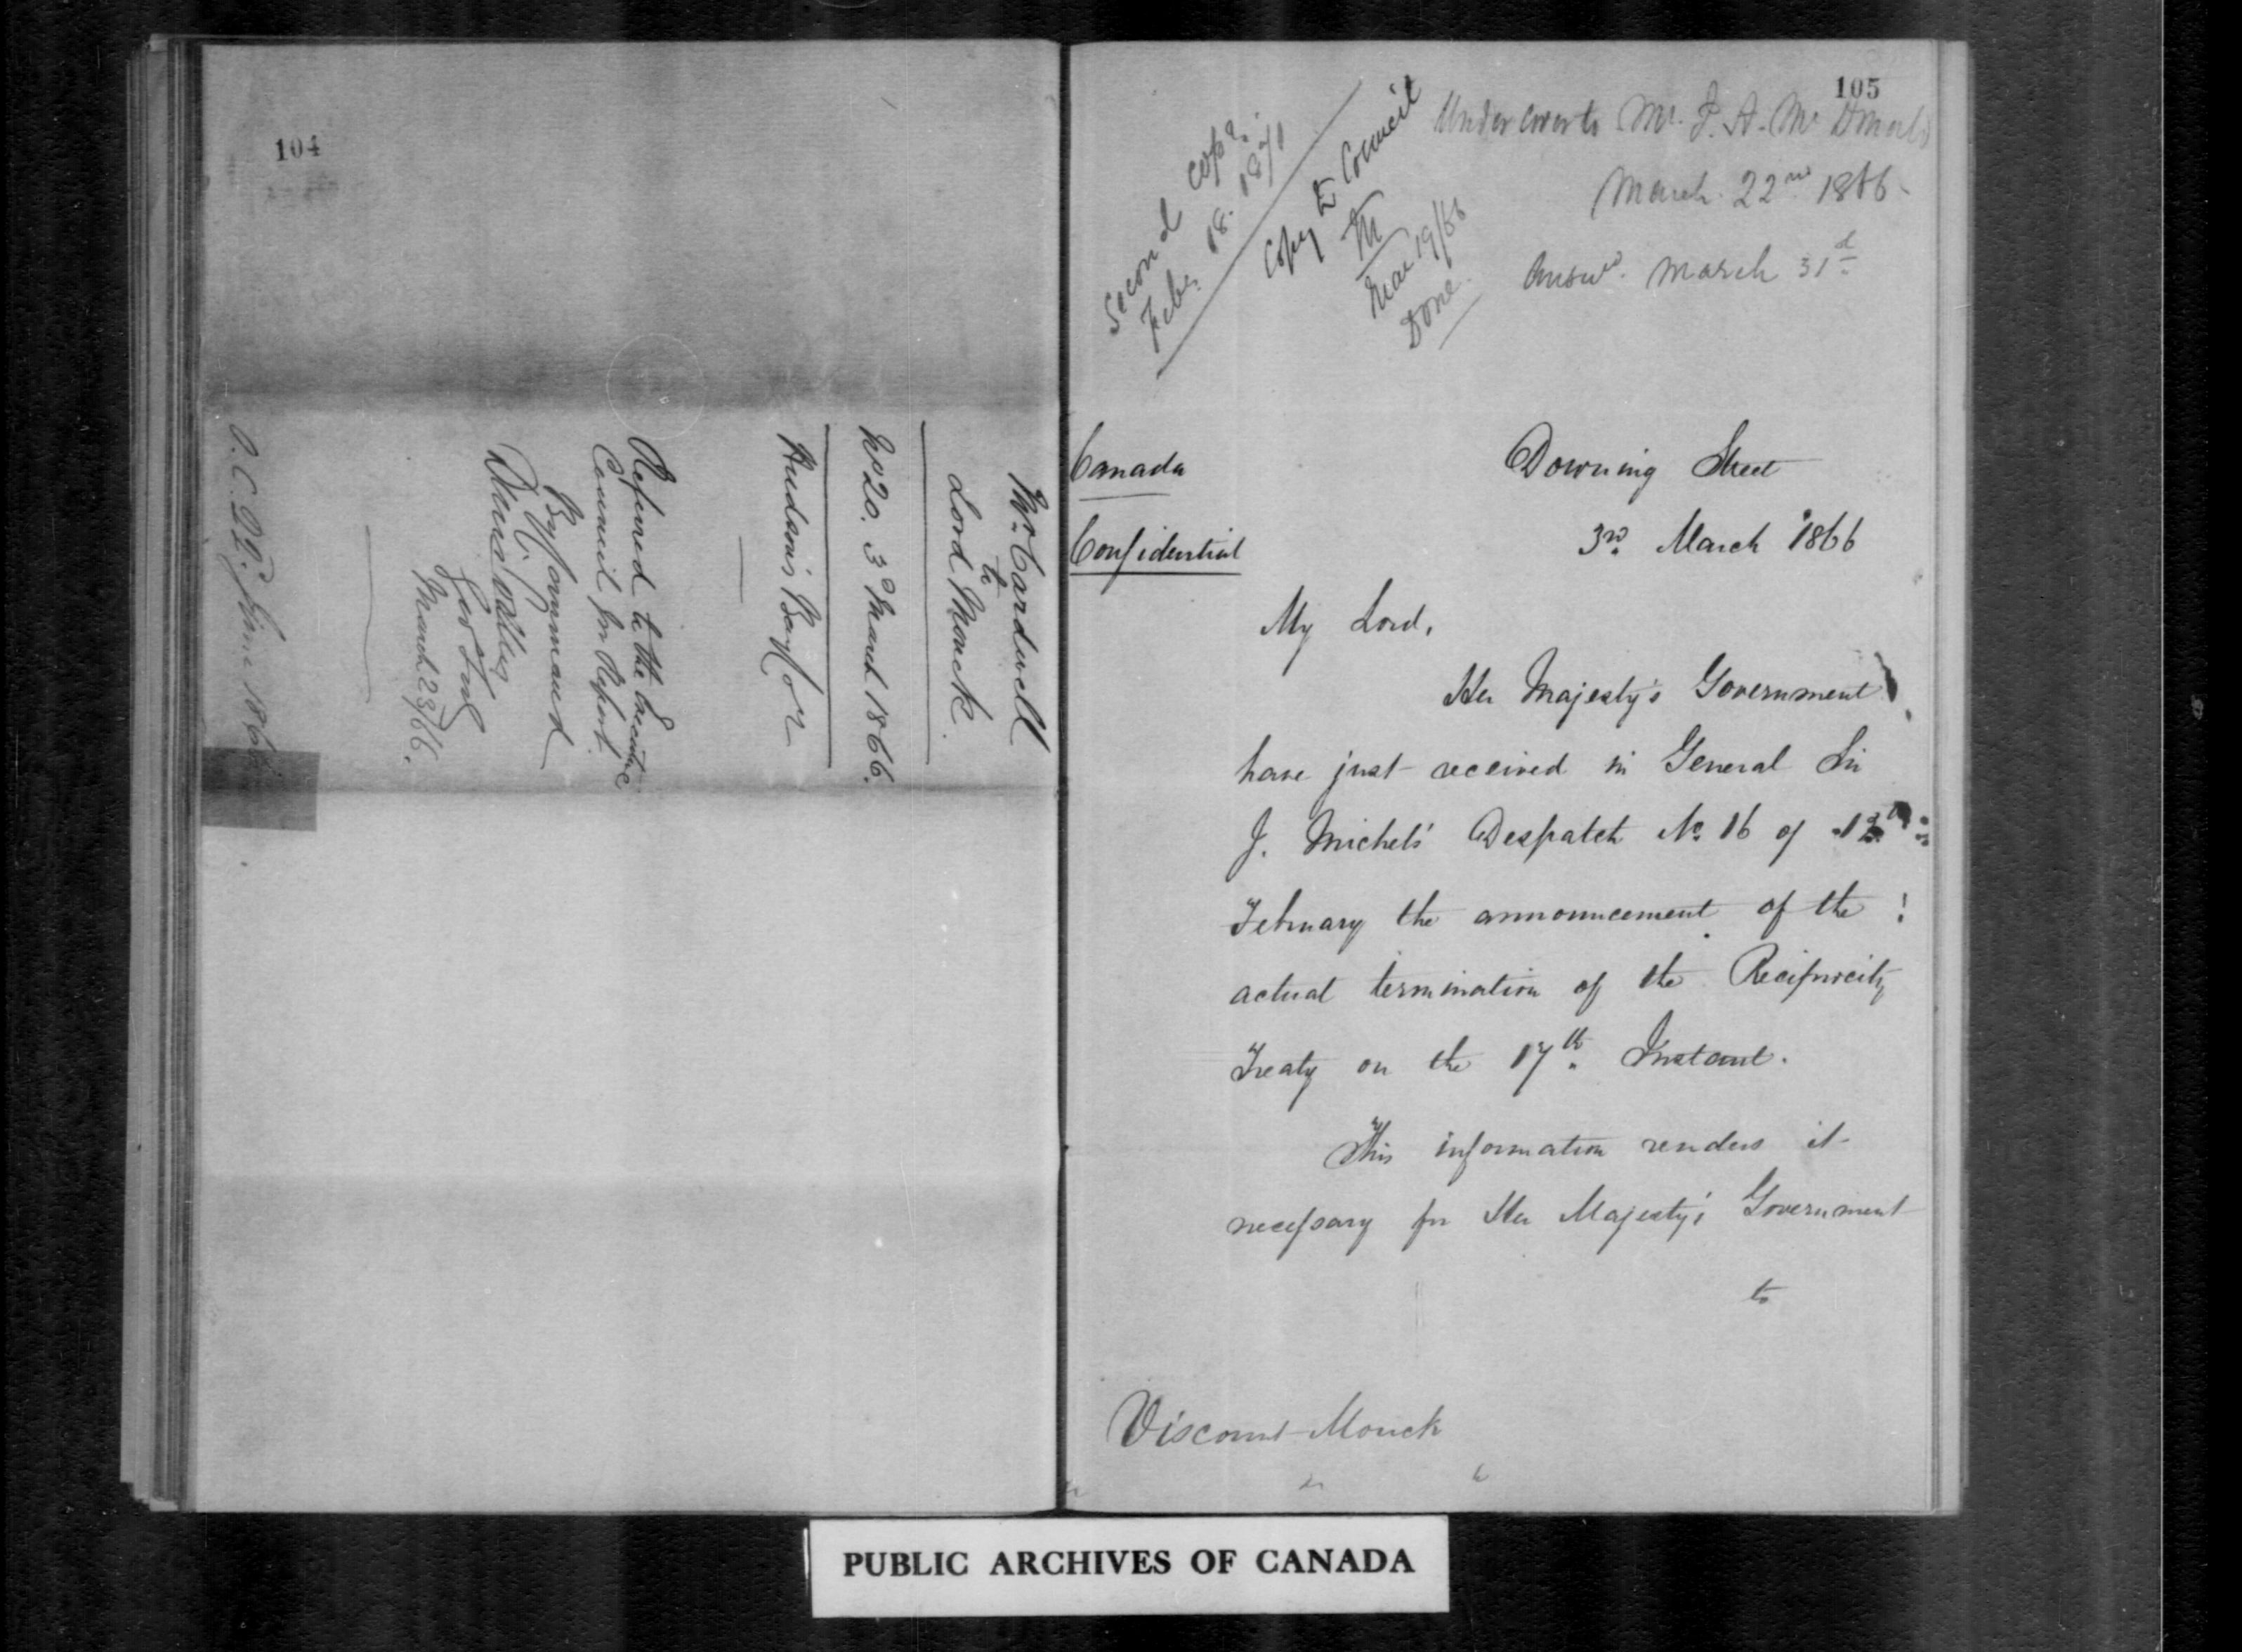 104
Mr. Cardwell
to
Lord Monck.
No 20. 3d March 1866.
Hudson's Bay Co
Referred to the Executive
Council for Report
By Command
Denis Godley
Gov Secy
March 23/66.
O.C. 22d June 1866
105
Second copy.
Feby. 18. 1871
Copy to Council
M
Mar 19/66
Done.
Under cover to Mr. J. A. McDonald
March 22nd 1866
Answd. March 31st
Canada
Confidential
Downing Street
3rd March 1866
My Lord,
Her Majesty's Government
have just received in General Sir
J. Michel's Despatch No. 16 of 12th
February the announcement of the
actual termination of the Reciprocity
Treaty on the 17th Instant.
This information renders it
necessary for Her Majesty's Government
to
Viscount Monck
PUBLIC ARCHIVES OF CANADA